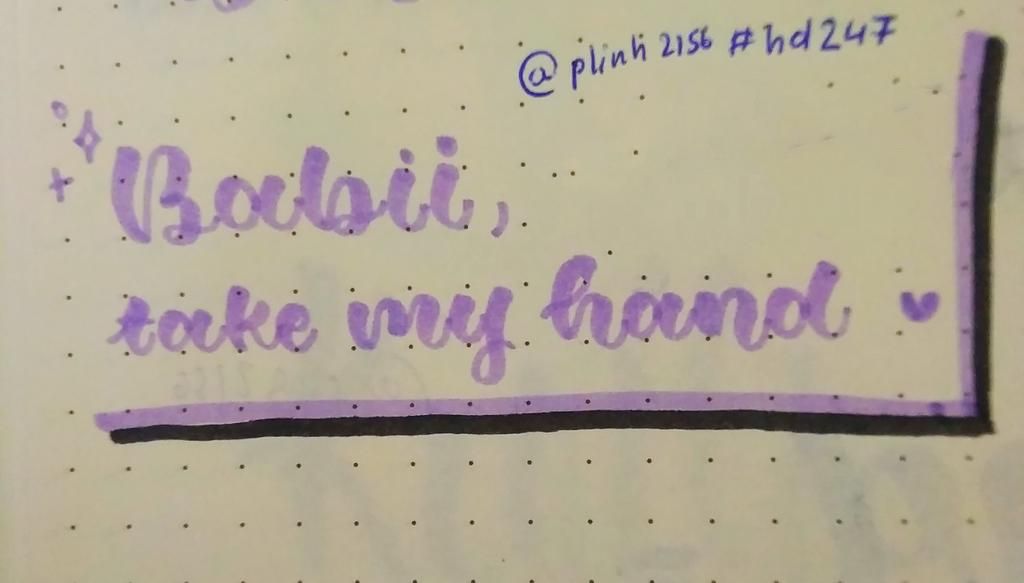 @plinh2156 #hd247
Babii,
take my hand